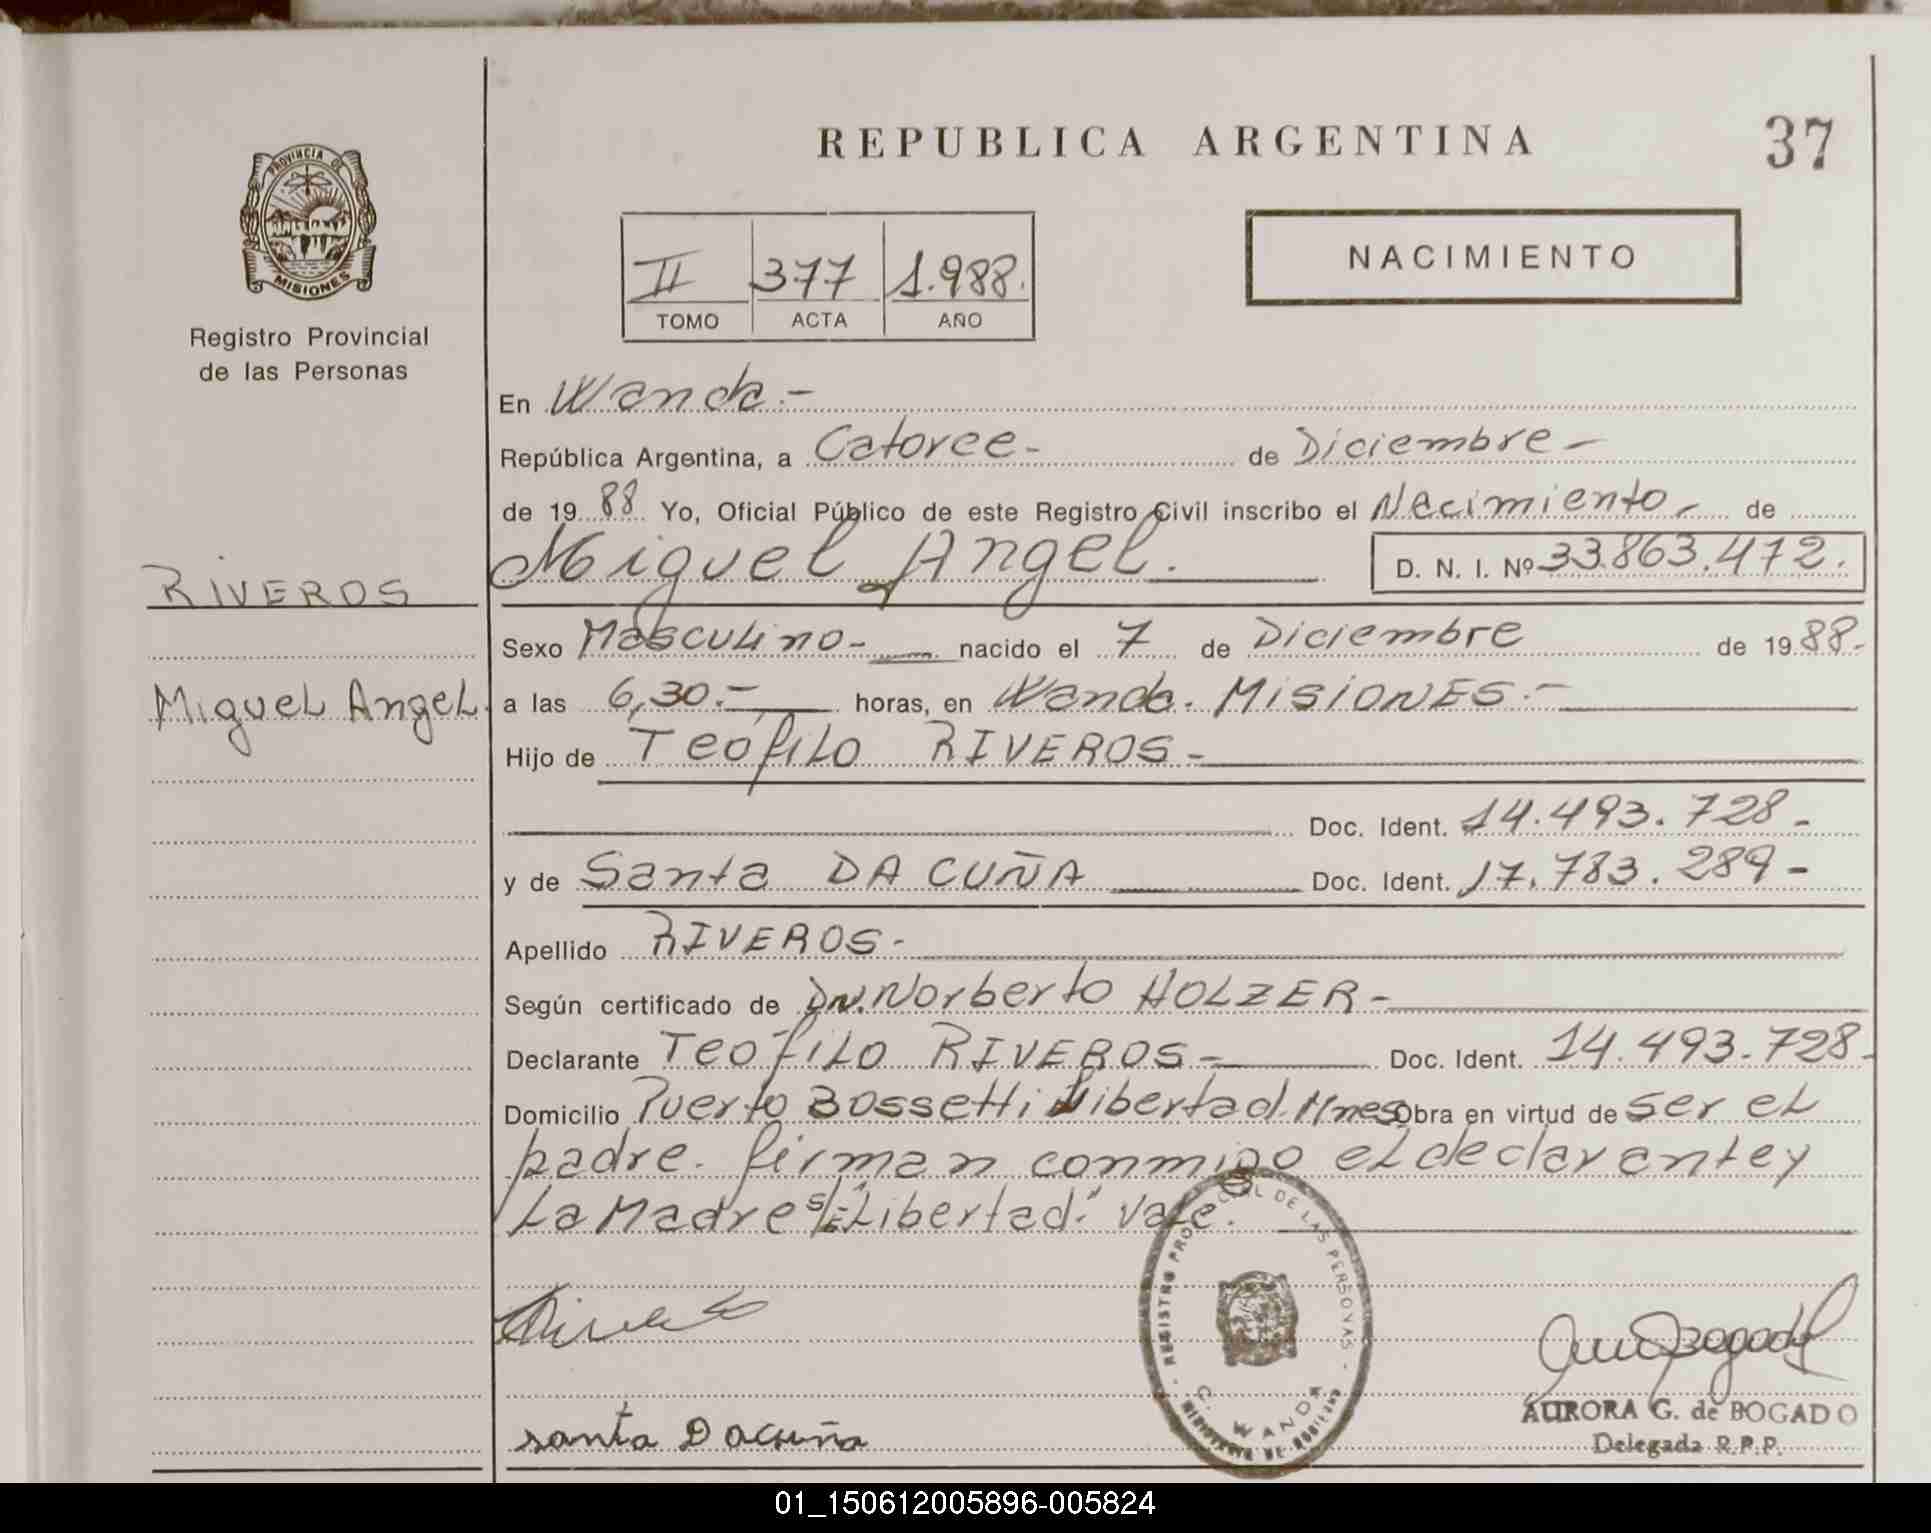 REPUBLICA ARGENTINA
37
PROVINCIA DE
MISIONES
Registro Provincial
de las Personas
NACIMIENTO
II 377 1.988.
TOMO ACTA AÑO
En Wanda.-
República Argentina, a Catorce- de Diciembre-
de 19 88 Yo, Oficial Público de este Registro Civil inscribo el Nacimiento- de
RIVEROS
Miguel Angel.
D. N. I. Nº 33.863.472.
Sexo Masculino- nacido el 7 de Diciembre de 19 88-
Miguel Angel.
a las 6,30.- horas, en Wanda. MISIONES.-
Hijo de Teófilo RIVEROS-
Doc. Ident. 14.493.728-
y de Santa DA CUÑA Doc. Ident. 17.783.289-
Apellido RIVEROS-
Según certificado de Dr. Norberto HOLZER-
Declarante Teófilo RIVEROS- Doc. Ident. 14.493.728-
Domicilio Puerto Bossetti Libertad. Mnes Obra en virtud de ser el
padre. firman conmigo el declarante y
La Madre S/E "Libertad." Vale.
REGISTRO PROVINCIAL DE LAS PERSONAS
WANDA
santa Dacuña
AURORA G. de BOGADO
Delegada R.P.P.
01_150612005896-005824